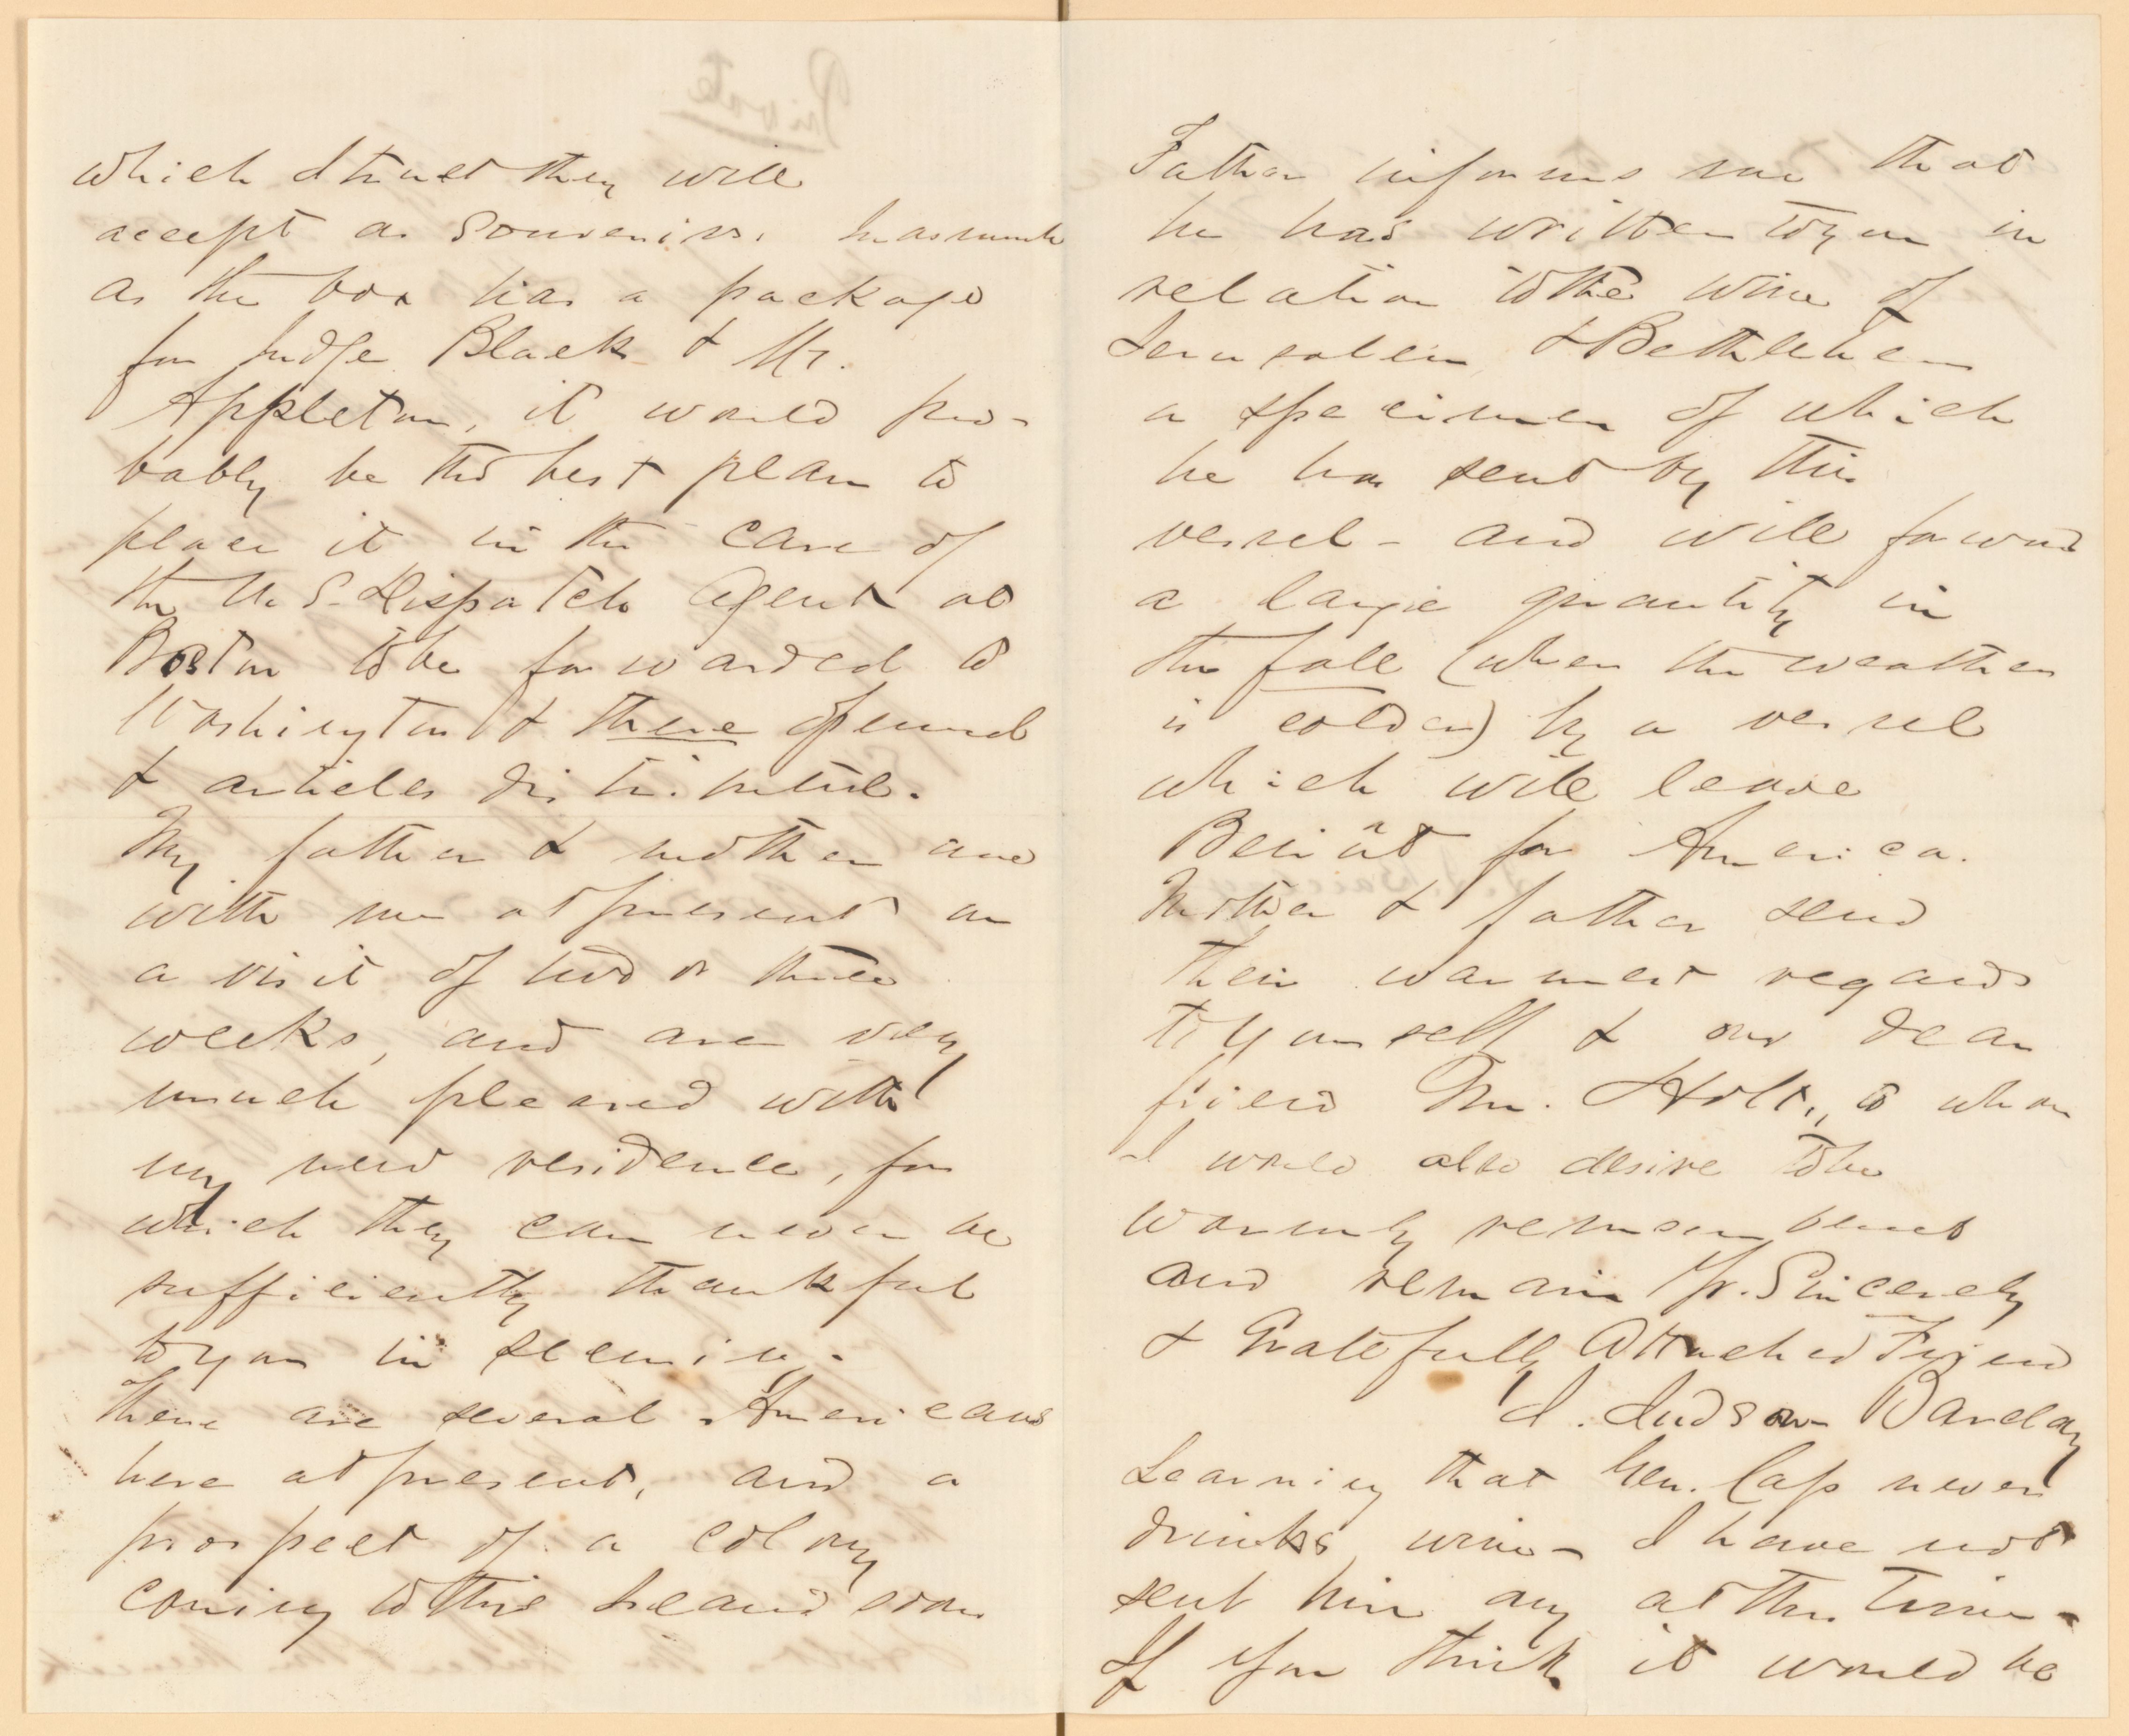 which I trust they will
accept as souvenirs. Inasmuch
as the box has a package
for Judge Black & Mr.
Appleton, it would pro-
bably be the best plan to
place it in the care of
the U.S. Dispatch Agent at
Boston to be forwarded to
Washington & there opened
& articles distributed.
My father & mother are
with me at present on
a visit of two or three
weeks, and are very
much pleased with
my new residence, for
which they can never be
sufficiently thankful
to you in securing.
There are several Americans
here at present, and a
prospect of a colony
coming to this Island soon
Father informs me that
he has written to you in
relation to the wine of
Jerusalem & Bethlehem
a specimen of which
he has sent by this
vessel - and will forward
a large quantity in
the fall (when the weather
is colder) by a vessel
which will leave
Beirût for America.
Mother & father send
their warmest regards
to yourself & our dear
friend Mr. Holt, to whom
I would also desire to be
warmly remembered
and remain Yr. Sincerely
& Gratefully Attached Friend
J. Judson Barclay
Learning that Gen. Cass never
drinks wine - I have not
sent him any at this time -
If you think it would be